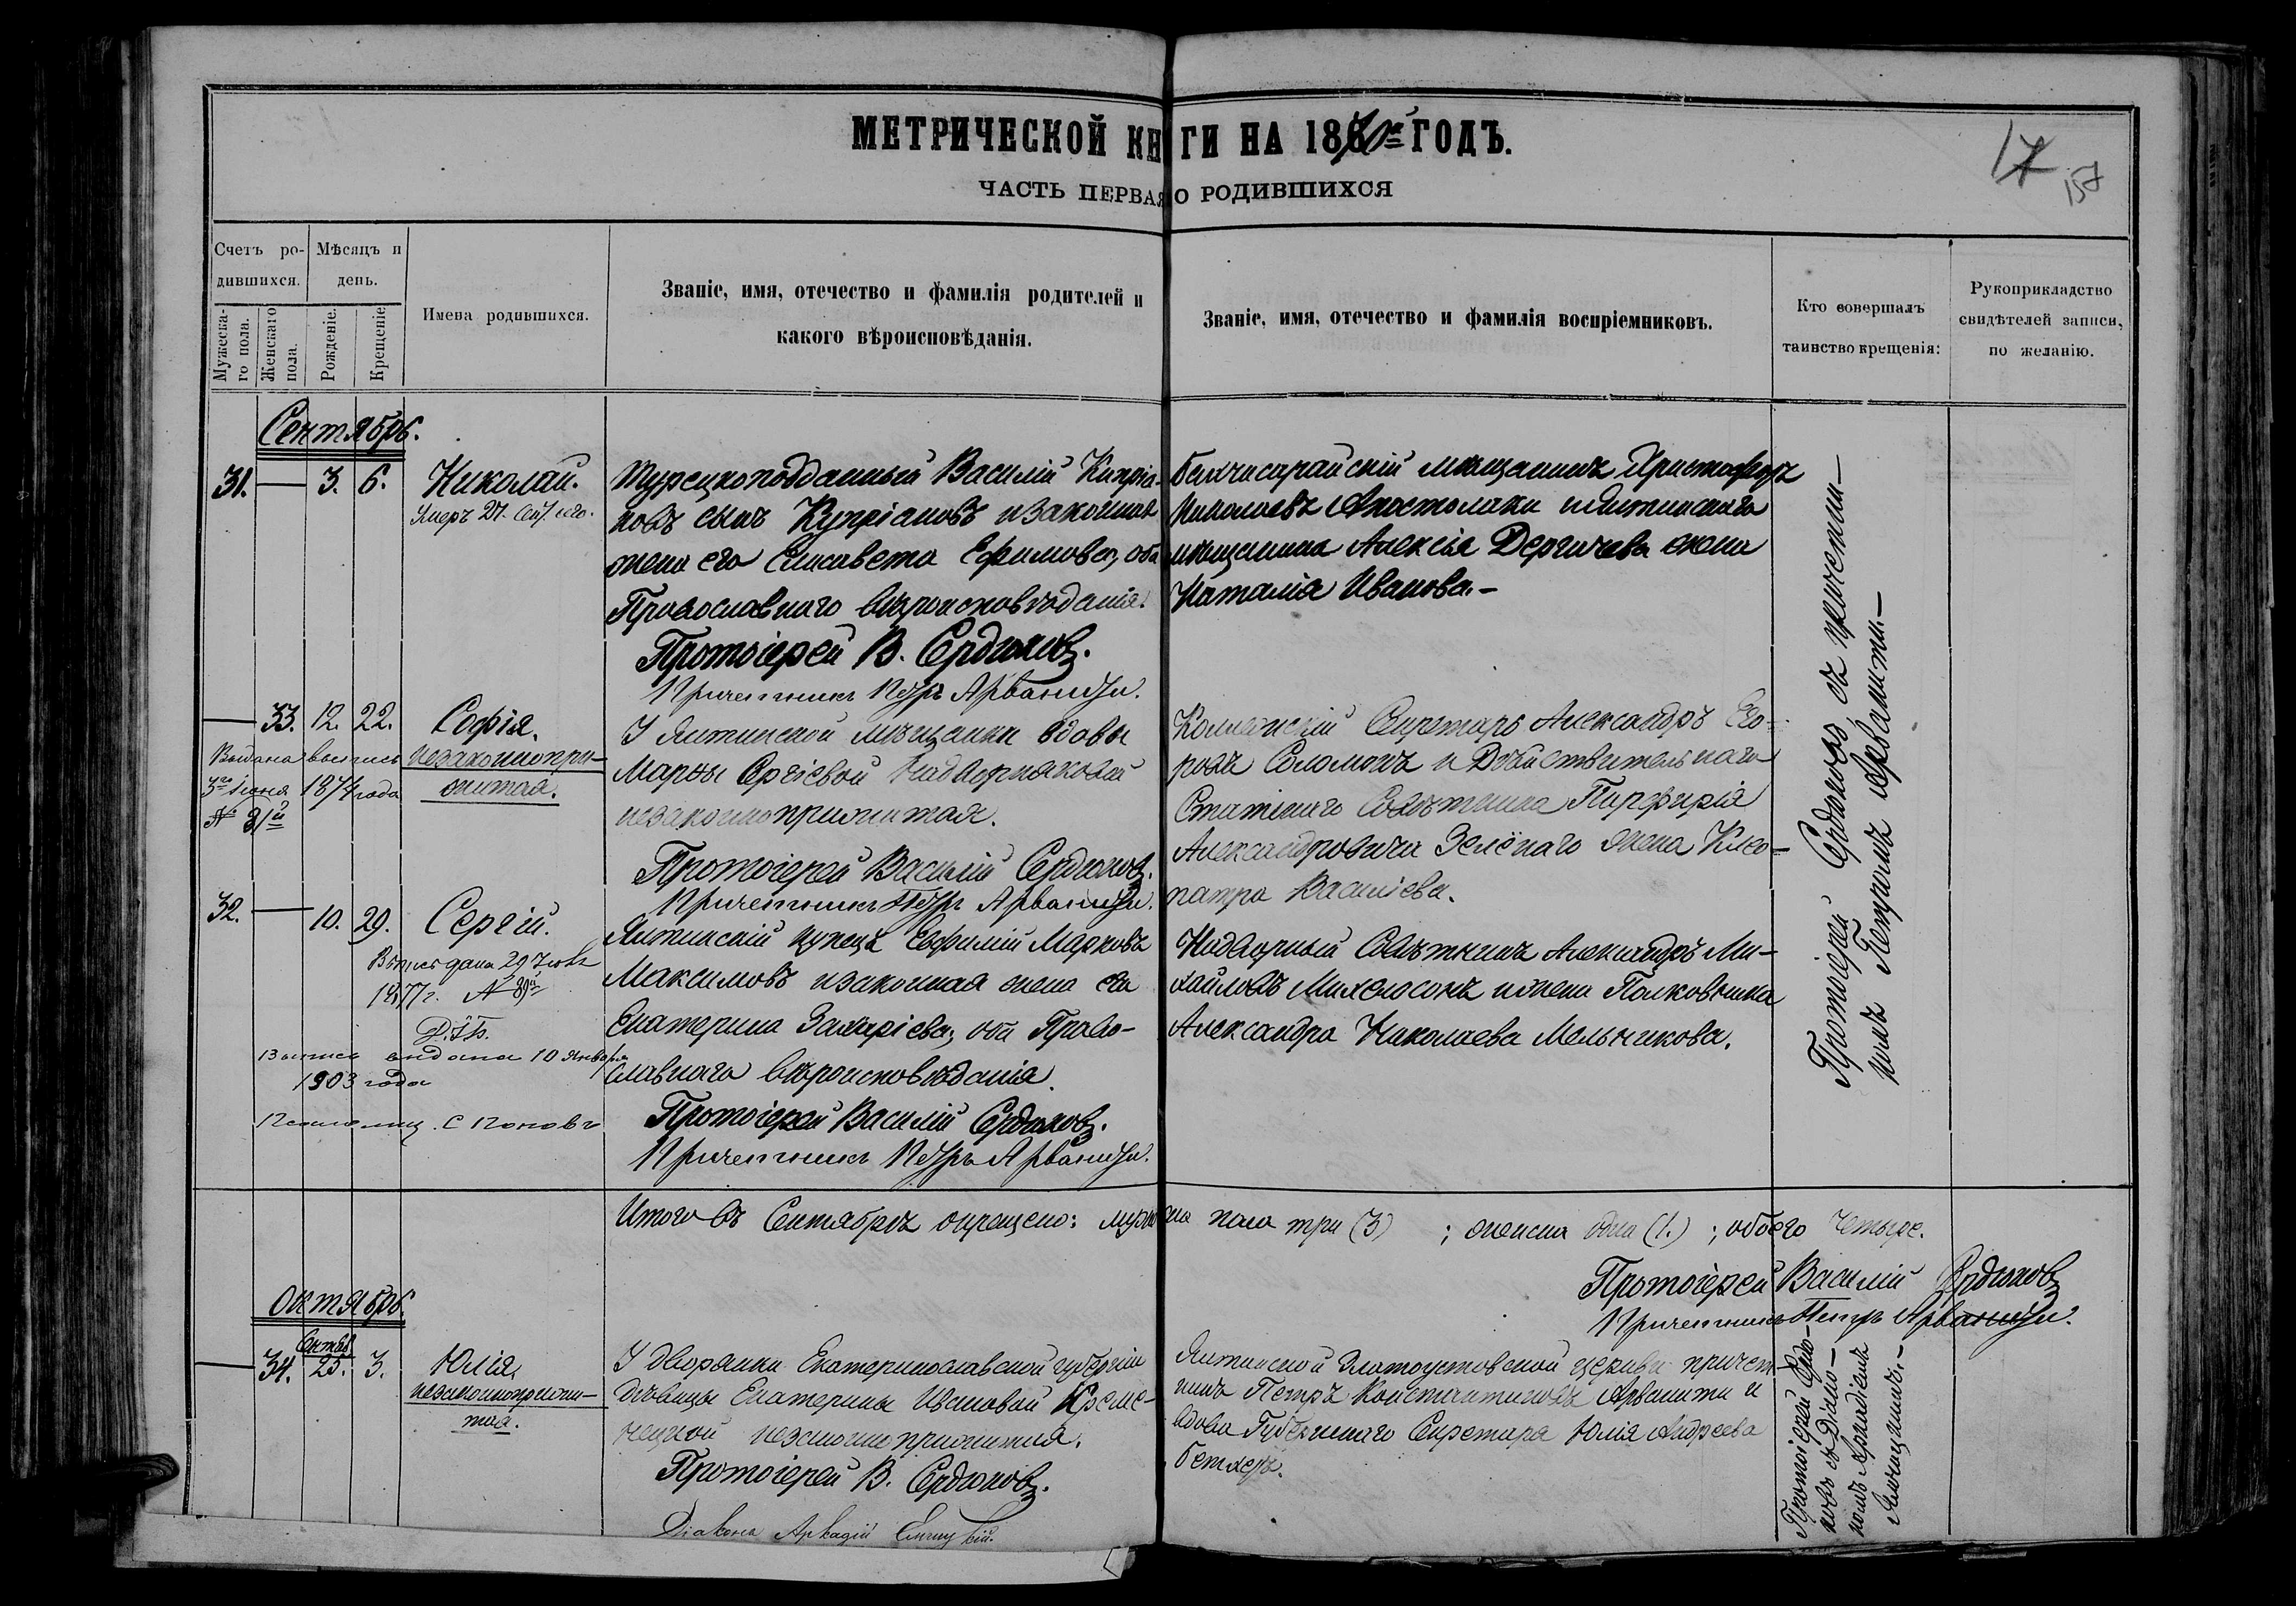 МЕТРИЧЕСКОЙ КНИГИ НА 1870й ГОДЪ.
17
157
ЧАСТЬ ПЕРВАЯ О РОДИВШИХСЯ
Счетъ ро-
дившихся.
Мужеска-
го пола.
Женскаго
пола.
Мѣсяцъ и
день.
Рожденіе.
Крещеніе.
Имена родившихся.
Званіе, имя, отечество и фамилія родителей и
какого вѣроисповѣданія.
Званіе, имя, отечество и фамилія воспріемниковъ.
Кто совершалъ
таинство крещенія:
Рукоприкладство
свидѣтелей записи,
по желанію.
Сентябрь.
31. — 3. 6.
Николай.
Умеръ 27.
Турецкоподданный Василій Кипріа-
новъ сынъ Купріановъ и законная
жена его Елисавета Ефимова, оба
Православнаго вѣроисповѣданія.
Протоіерей В. Сердюковъ.
Причетникъ Петръ Арванити.
Бахчисарайскій мѣщанинъ Христофоръ
Николаевъ Апостолаки и Ялтинскаго
мѣщанина Алексія Дергичева жена
Наталія Иванова.—
Протоіерей Сердюковъ съ причетни—
комъ Петромъ Арванити.—
— 33. 12. 22.
Софія.
незаконнопри-
житая.
Выдана выпись
3го іюня 1874 года
№ 31й
У Ялтинской мѣщанки вдовы
Марѳы Сергіевой Надворняковой
незаконноприжитая.
Протоіерей Василій Сердюковъ.
Причетникъ Петръ Арванити.
Коллежскій Секретарь Александръ Его-
ровъ Соломохъ и Дѣйствительнаго
Статскаго Совѣтника Парфирія
Александровича Зеленаго жена Клео-
патра Васильева.
32. — 10. 29.
Сергій.
Выпись дана 29 Іюля
1877 г. №
Выпись выдана 10 Января
1903 года
Псаломщ. С Поповъ
Ялтинскій купецъ Евфимій Марковъ
Максимовъ и законная жена его
Екатерина Захаріева, оба Право-
славнаго вѣроисповѣданія.
Протоіерей Василій Сердюковъ.
Причетникъ Петръ Арванити.
Надворный Совѣтникъ Александръ Ми-
хайловъ Михельсонъ и жена Полковника
Александра Николаева Мельникова.
Итого въ Сентябрѣ окрещено: мужеска пола три (3) ; женска одна (1.) ; обоего четыре.
Протоіерей Василій Сердюковъ
Причетникъ Петръ Арванити.
Октябрь.
Сентяб
— 34. 25. 3.
Юлія.
незаконноприжи-
тая.
У дворянки Екатеринославской губерніи
дѣвицы Екатерины Ивановой Креме-
нецкой незаконноприжитая.
Протоіерей В. Сердюковъ.
Діаконъ Аркадій
Ялтинской Златоустовской церкви причет-
никъ Петръ Константиновъ Арванити и
вдова Губернскаго Секретаря Юлія Андреева
Бетхеръ.
Протоіерей Сердю-
ковъ съ Діако-
номъ Аркадіемъ